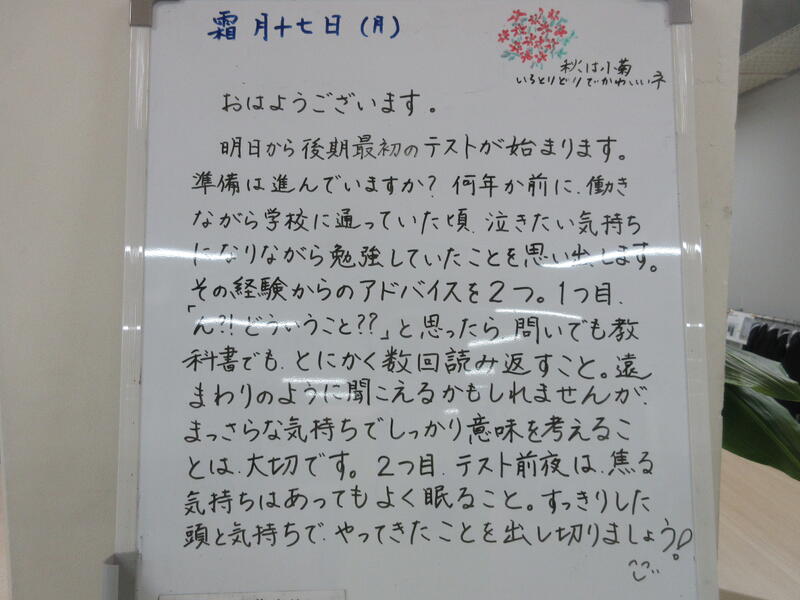 霜月十七日(月)
秋は小菊
いろとりどりでかわいいネ
おはようございます。
明日から後期最初のテストが始まります。
準備は進んでいますか?何年か前に、働き
ながら学校に通っていた頃、泣きたい気持ち
になりながら勉強していたことを思い出します。
その経験からのアドバイスを2つ。1つ目、
「ん?!どういうこと??」と思ったら、問いでも教
科書でも、とにかく数回読み返すこと。遠
まわりのように聞こえるかもしれませんが、
まっさらな気持ちでしっかり意味を考えるこ
とは、大切です。2つ目、テスト前夜は、焦る
気持ちはあってもよく眠ること。すっきりした
頭と気持ちで、やってきたことを出し切りましょう。